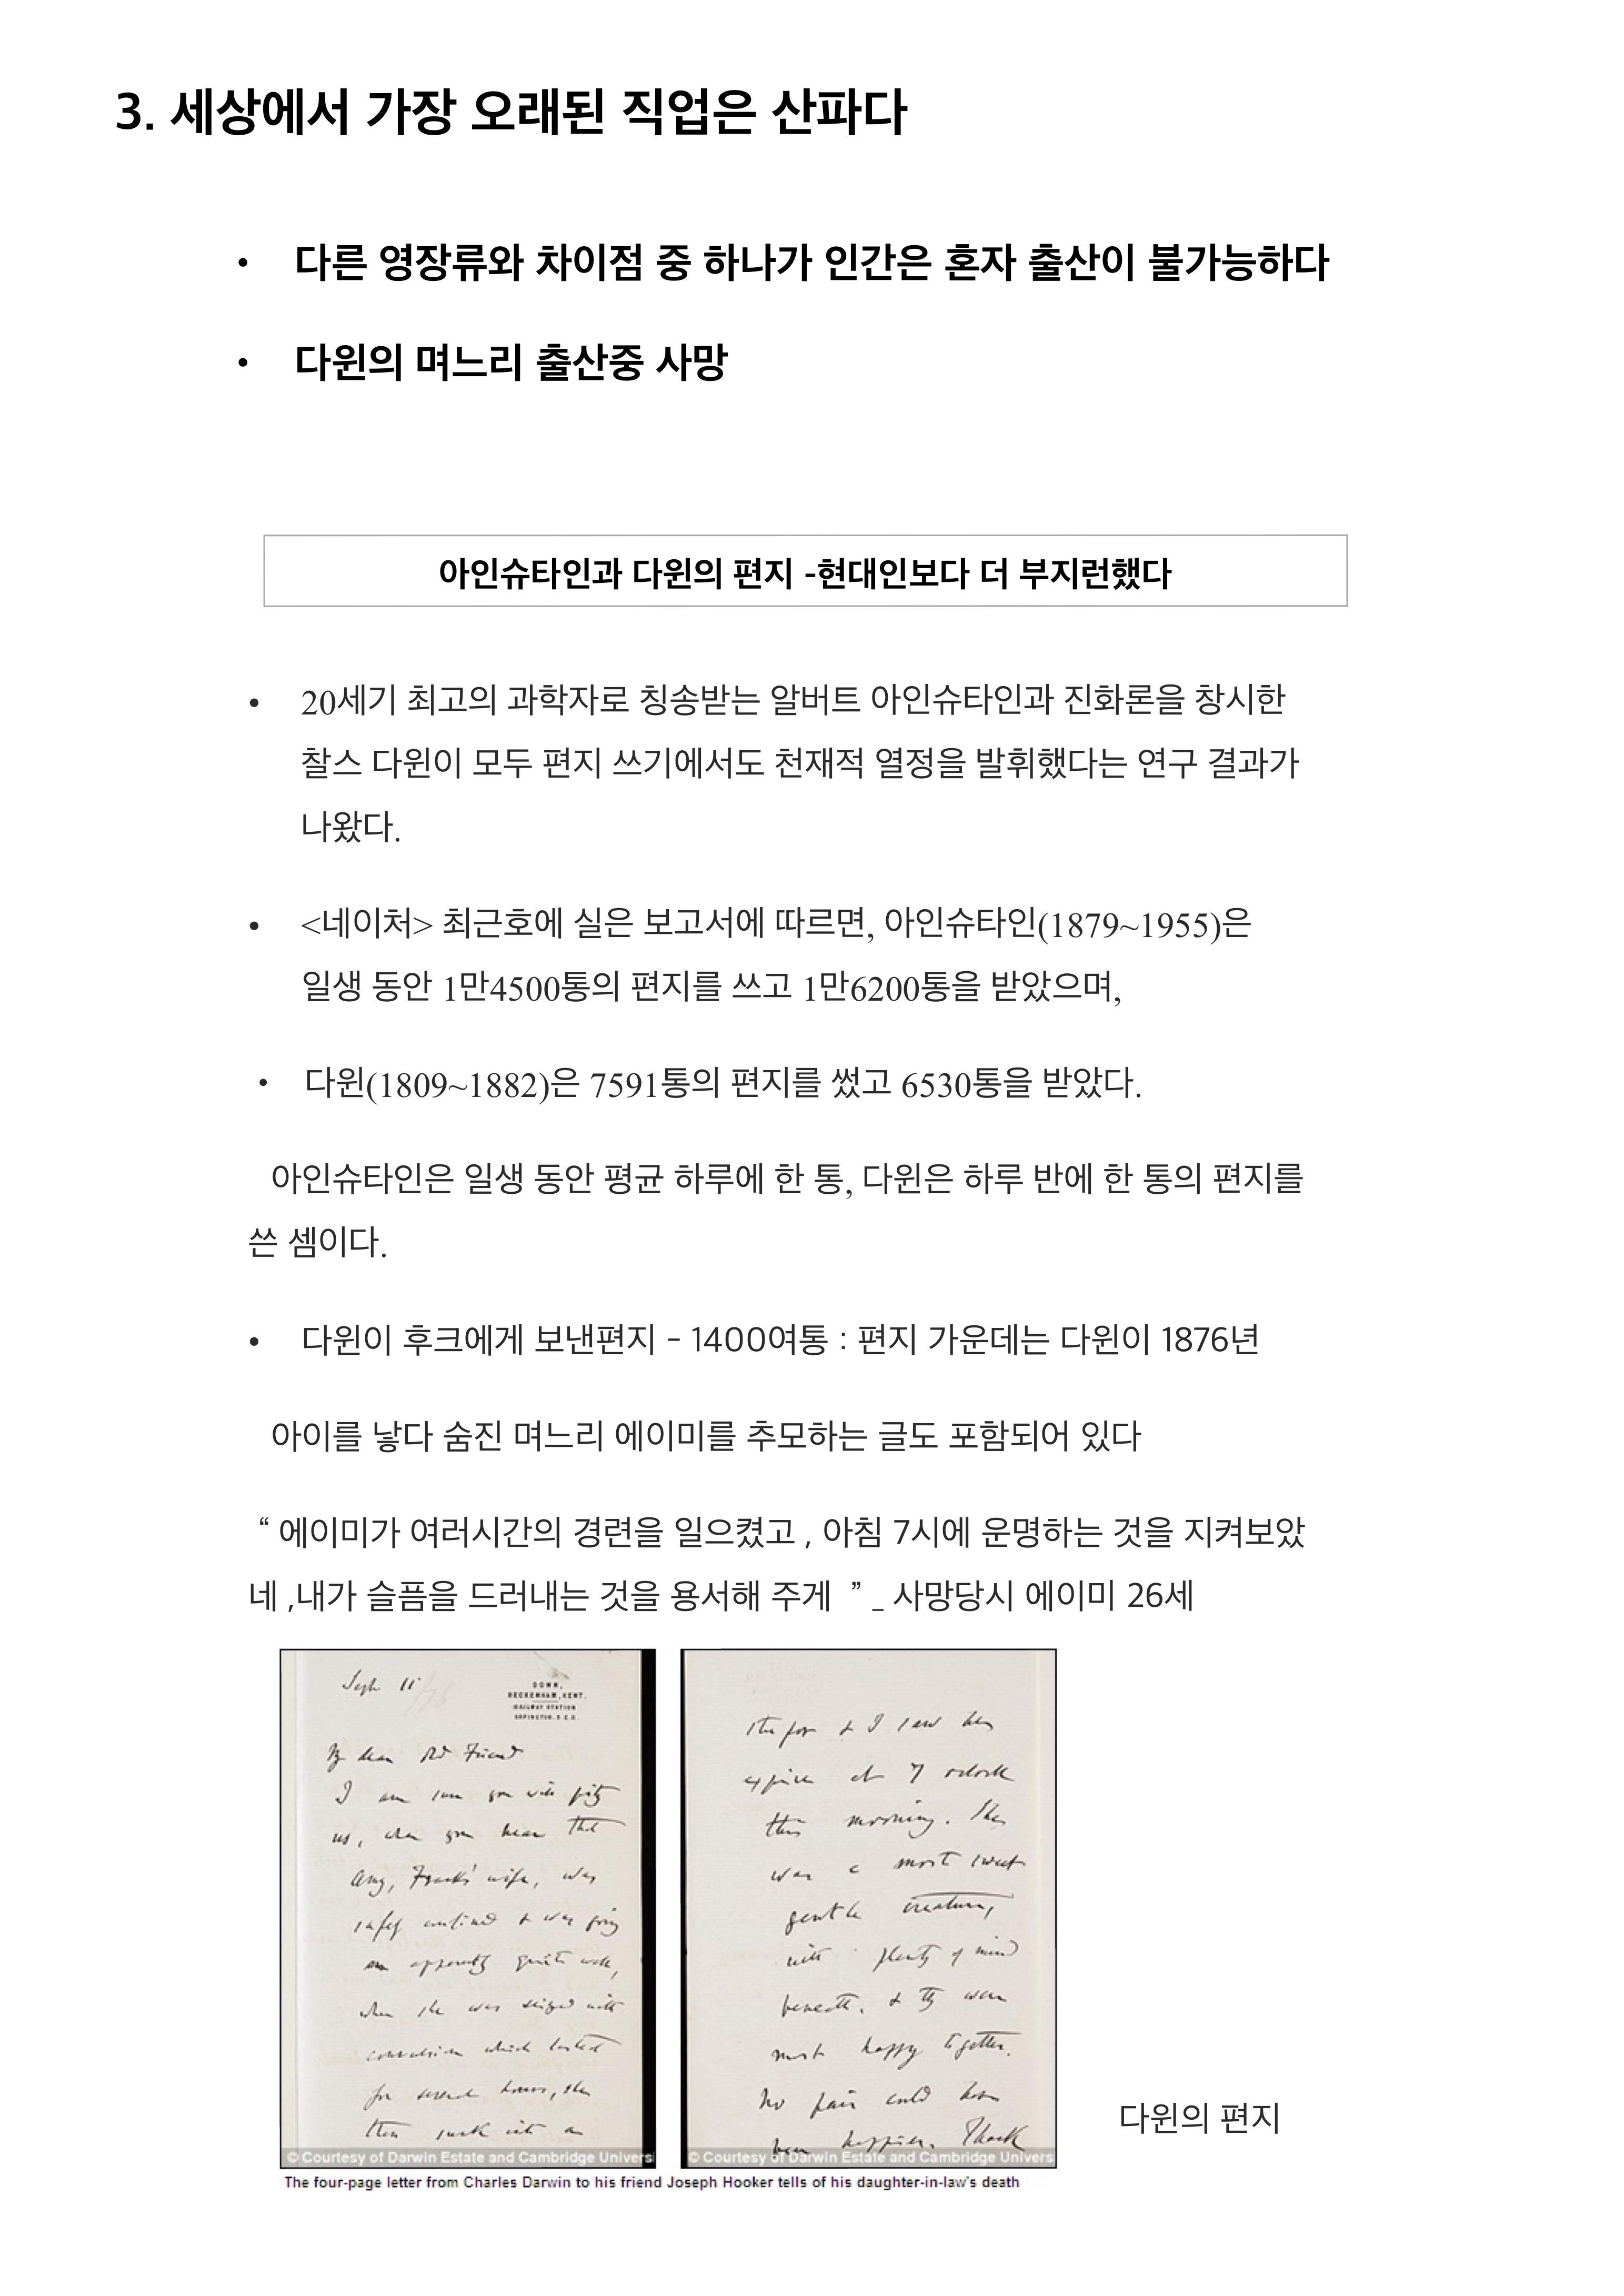 3. 세상에서 가장 오래된 직업은 산파다
• 다른 영장류와 차이점 중 하나가 인간은 혼자 출산이 불가능하다
• 다윈의 며느리 출산중 사망
아인슈타인과 다윈의 편지 -현대인보다 더 부지런했다
• 20세기 최고의 과학자로 칭송받는 알버트 아인슈타인과 진화론을 창시한
찰스 다윈이 모두 편지 쓰기에서도 천재적 열정을 발휘했다는 연구 결과가
나왔다.
• <네이처> 최근호에 실은 보고서에 따르면, 아인슈타인(1879~1955)은
일생 동안 1만4500통의 편지를 쓰고 1만6200통을 받았으며,
• 다윈(1809~1882)은 7591통의 편지를 썼고 6530통을 받았다.
아인슈타인은 일생 동안 평균 하루에 한 통, 다윈은 하루 반에 한 통의 편지를
쓴 셈이다.
• 다윈이 후크에게 보낸편지 - 1400여통 : 편지 가운데는 다윈이 1876년
아이를 낳다 숨진 며느리 에이미를 추모하는 글도 포함되어 있다
“ 에이미가 여러시간의 경련을 일으켰고 , 아침 7시에 운명하는 것을 지켜보았
네 ,내가 슬픔을 드러내는 것을 용서해 주게 ” _ 사망당시 에이미 26세
Sept 11
DOWN,
BECKENHAM, KENT.
RAILWAY STATION
ORPINGTON. S.E.R.
My dear old Friend
I am sure you will pity
us, when you hear that
Amy, Frank's wife, was
safely confined & was going
on apparently quite well,
when she was seized with
convulsions which lasted
for several hours, she
then sunk into a
© Courtesy of Darwin Estate and Cambridge Univers
stupor & I saw her
expire at 7 oclock
this morning. She
was a most sweet
gentle creature,
with plenty of mind
beneath, & they were
most happy together.
No pair could have
been happier. Thank
© Courtesy of Darwin Estate and Cambridge Univers
The four-page letter from Charles Darwin to his friend Joseph Hooker tells of his daughter-in-law's death
다윈의 편지